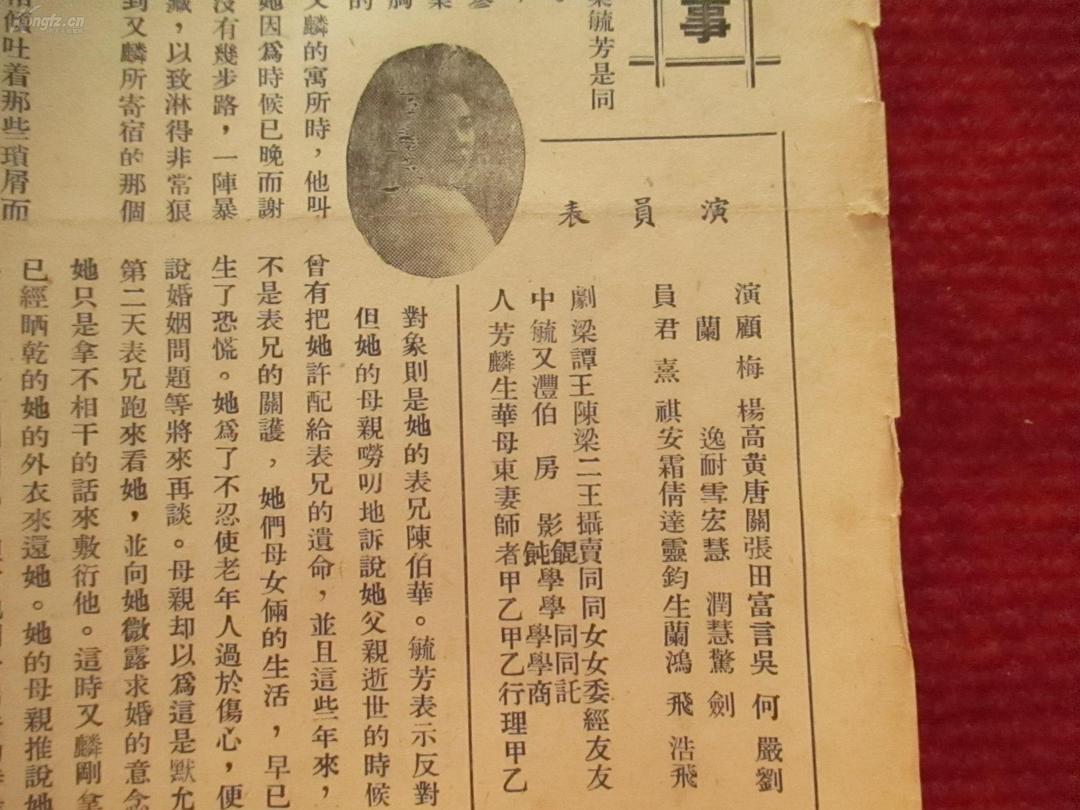 事
毓芳是同
演員表
演顧梅楊高黃唐關張田富言吳何嚴劉
蘭逸耐雪宏慧潤慧驚劍
員君熹祺安霜倩達靈鈞生蘭鴻飛浩飛
劇梁譚王陳梁二王攝賣同同女女委經友友
中毓又灃伯房影餛飩學學同學同學託商
人芳麟生華母東妻師者甲乙甲乙行理甲乙
的
又麟的寓所時，他叫
她因爲時候已晚而謝
沒有幾步路，一陣暴
藏，以致淋得非常狼
到又麟所寄宿的那個
傾吐着那些瑣屑而
對象則是她的表兄陳伯華。毓芳表示反對
但她的母親嘮叨地訴說她父親逝世的時候
曾有把她許配給表兄的遺命，並且這些年來，
不是表兄的關護，她們母女倆的生活，早已
生了恐慌。她爲了不忍使老年人過於傷心，便
說婚姻問題等將來再談。母親却以爲這是默允
第二天表兄跑來看她，並向她微露求婚的意念
她只是拿不相干的話來敷衍他。這時又麟剛拿
已經晒乾的她的外衣來還她。她的母親推說她
kongfz.cn